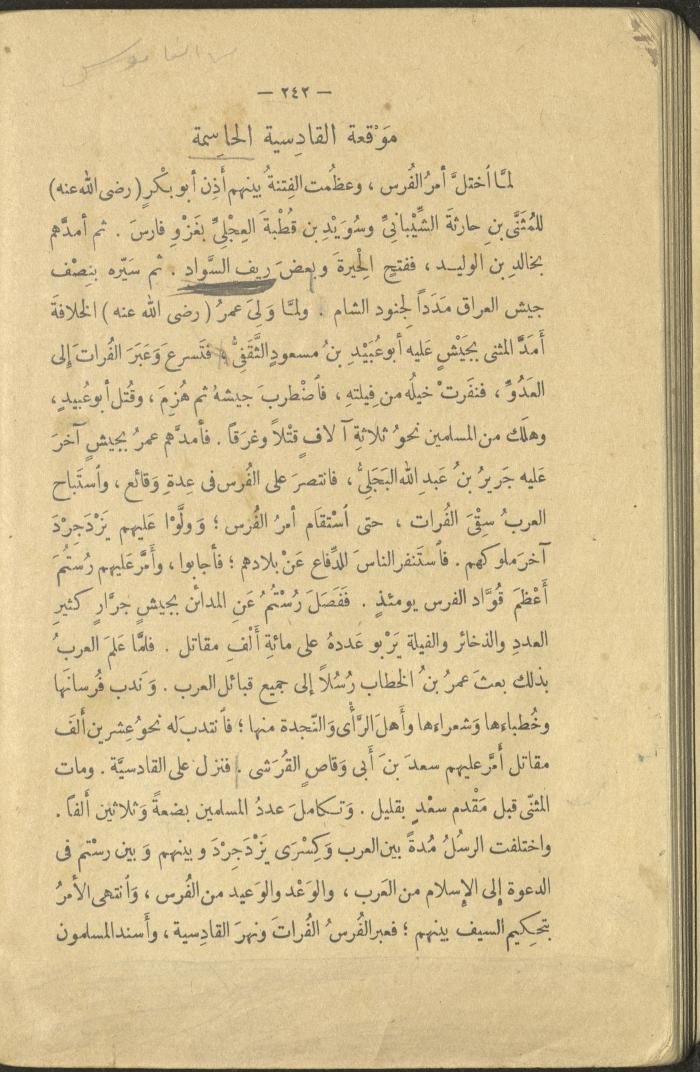 — ٢٤٢ —
مَوْقعة القادِسية الحاسِمة
لمَّا ٱختلَّ أمرُ الفُرس ، وعظُمت الفِتنةُ بينهم أَذِن أبو بكْرٍ ( رضى الله عنه )
للمُثَنَّى بنِ حارثةَ الشَّيْبانىِّ وسُوَيْدِ بن قُطْبةَ العِجْلىِّ بغَزْوِ فارسَ . ثم أمدَّهم
بخالد بن الوليد ، ففتح الحِيرةَ وبعضَ رِيف السَّواد . ثم سَيّره بنِصْف
جيش العراق مَدَداً لجنود الشام . ولمَّا وَلِىَ عمرُ ( رضى الله عنه ) الخلافةَ
أمَدَّ المثنى بجَيْشٍ عَليه أبو عُبَيْد بنُ مسعودٍ الثَّقَفىُّ ، فتَسرعَ وَعَبَرَ الفُراتَ إلى
العَدُوِّ ، فنفَرتْ خيلُه من فِيلتهِ ، فٱضْطربَ جيشهُ ثم هُزِمَ ، وقُتل أبو عُبيدٍ ،
وهلَك من المسلمين نحوُ ثلاثةِ آلافٍ قتْلاً وغرَقاً . فأمدَّهم عمرُ بجيشٍ آخرَ
عَليه جَريرُ بنُ عَبدِ الله البَجَلىُّ ، فانتصرَ على الفُرس فى عِدةِ وَقائع ، وٱستَباح
العربُ سِقْىَ الفُرات ، حتى ٱسْتقَام أمرُ الفُرس ؛ وَولَّوْا عَليهم يَزْدَجِرْدَ
آخرَ ملوكهم . فٱستَنفر الناسَ للدِّفاع عَنْ بلادهم ؛ فأجابوا ، وأمَّر عَليهم رُسْتُمَ
أعْظمَ قُوَّاد الفرس يومئذٍ . ففَصَلَ رُسْتُمُ عَنِ المدائن بجيشٍ جرَّارٍ كثيرِ
العددِ والذخائر والفيلة يَرْبو عَددهُ على مائةِ أَلْفِ مقاتل . فلمَّا عَلمَ العربُ
بذلك بعثَ عمرُ بنُ الخطاب رُسُلاً إلى جميع قبائل العرب . وَندب فُرسانَها
وخُطباءها وَشعراءها وأهلَ الرَّأْى وَالنّجدة منها ؛ فٱنتدبَ له نحوُ عشرين أَلفَ
مقاتل أمَّر عليهم سعدَ بنَ أَبى وَقاصٍ القُرَشى . فنزل على القادسيَّة . ومات
المثنّى قبل مَقْدم سعْدٍ بقليل . وَتكاملَ عددُ المسلمين بضعةً وَثلاثين أَلفاً .
واختلفت الرسُلُ مُدةً بين العرب وَكِسْرَى يَزْدَجِرْدَ وبينهم وَبين رستم فى
الدعوة إلى الإسلام من العَرب ، والوَعْد والوَعيد من الفُرس ، وَٱنتهى الأمرُ
بتحكيم السيف بينهم ؛ فعبر الفُرسُ الفُراتَ ونهرَ القادِسية ، وأَسند المسلمون